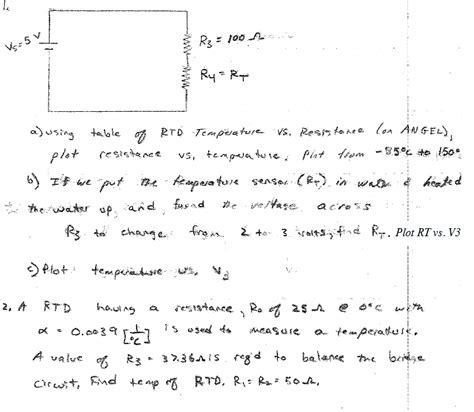 1.
Vs=5 V
R3 = 100 Ω
R4 = RT
a) using table of RTD Temperature vs. Resistance (on ANGEL),
plot resistance vs. temperature. Plot from -85°C to 150°
b) If we put the temperature sensor (RT) in water & heated
the water up, and found the voltage across
R3 to change from 2 to 3 volts, find RT. Plot RT vs. V3
c) Plot temperature vs. V3
2. A RTD having a resistance, Ro of 25 Ω @ 0°C with
α = 0.0039 [1/°C] is used to measure a temperature.
A value of R3 = 37.36Ω is req'd to balance the bridge
circuit, Find temp of RTD. R1 = R2 = 50 Ω.